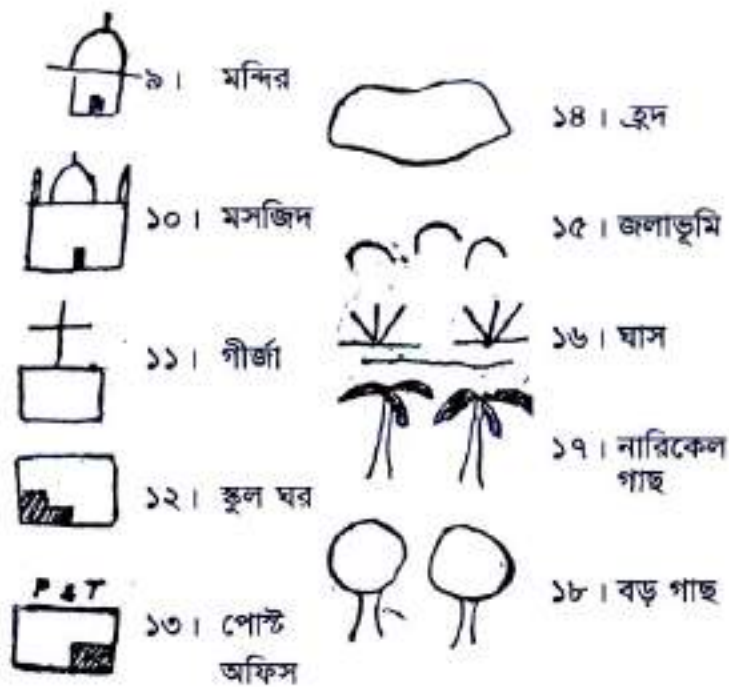 ৯। মন্দির
১০। মসজিদ
১১। গীর্জা
১২। স্কুল ঘর
P & T
১৩। পোস্ট
অফিস
১৪। হ্রদ
১৫। জলাভূমি
১৬। ঘাস
১৭। নারিকেল
গাছ
১৮। বড় গাছ